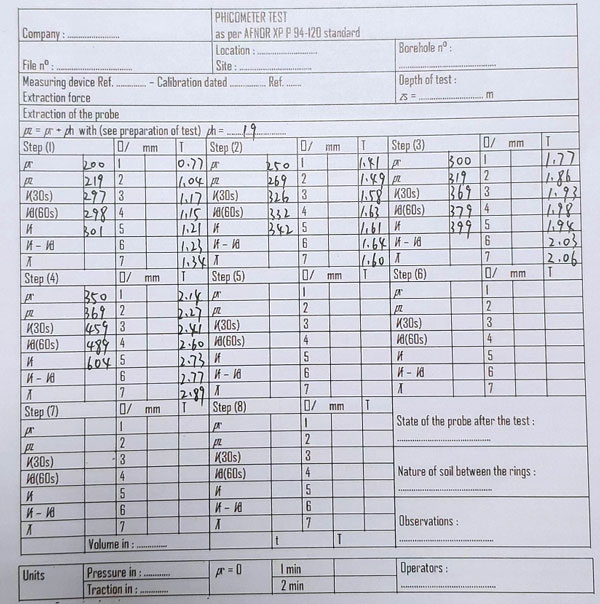 PHICOMETER TEST
Company : .............. as per AFNOR XP P 94-120 standard
Location : .............. Borehole nº :
File nº : .............. Site : ..............
Measuring device Ref. ............ – Calibration dated .............. Ref. ...... Depth of test :
Extraction force = .............. m
Extraction of the probe
with (see preparation of test) ph = ........19
Step (1) mm T Step (2) mm T Step (3) mm T
pr 200 1 0.77 pr 250 1 1.41 pr 300 1 1.77
219 2 1.04 269 2 1.49 319 2 1.86
(30s) 297 3 1.17 (30s) 326 3 1.58 (30s) 369 3 1.93
(60s) 298 4 1.15 (60s) 332 4 1.63 (60s) 379 4 1.98
301 5 1.21 342 5 1.61 399 5 1.94
6 1.23 6 1.64 6 2.03
7 1.34 7 1.60 7 2.06
Step (4) mm T Step (5) mm Step (6) mm
pr 350 1 2.14 pr 1 pr 1
369 2 2.27 2 2
(30s) 459 3 2.41 (30s) 3 (30s) 3
(60s) 489 4 2.60 (60s) 4 (60s) 4
604 5 2.73 5 5
6 2.77 6 6
7 2.89 7 7
Step (7) mm T Step (8) mm T
pr 1 pr 1 State of the probe after the test :
2 2
(30s) 3 (30s) 3
(60s) 4 (60s) 4 Nature of soil between the rings :
5 5
6 6 Observations :
7 7
Volume in : .............. t T
Units Pressure in : ........... pr = 0 1 min Operators :
Traction in : ........... 2 min